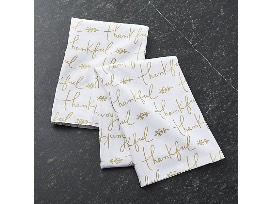 thankful
thankful
thankful
thankful
thankful
thankful
thankful
thankful